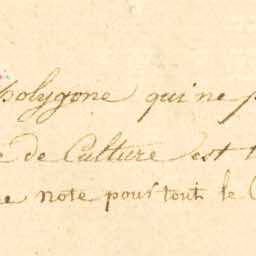 Polygone qui ne p
e de Culture est t
e note pour tout le C